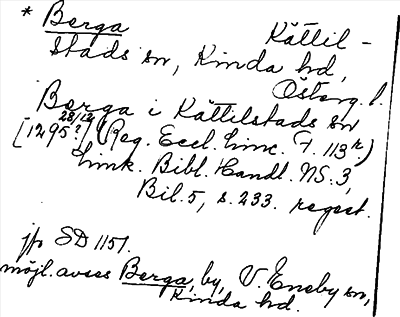 * Berga Kättil-
stads sn, Kinda hd,
Österg. l.
Berga i Kättilstads sn
28/12
[1295?] (Reg. Eccl. Linc. F. 113 r.)
Link. Bibl. Handl. NS. 3,
Bil. 5, s. 233. regest.
jfr SD 1151.
möjl. avses Berga, by, V. Eneby sn,
Kinda hd.